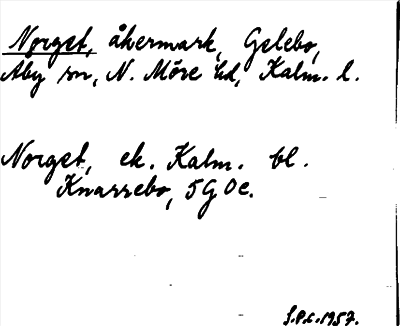 Norget, åkermark, Gelebo,
Åby sn, N. Möre hd, Kalm. l.
Norget, ek. Kalm. bl.
Knarrebo, 5G0e.
S.P.C. 1957.